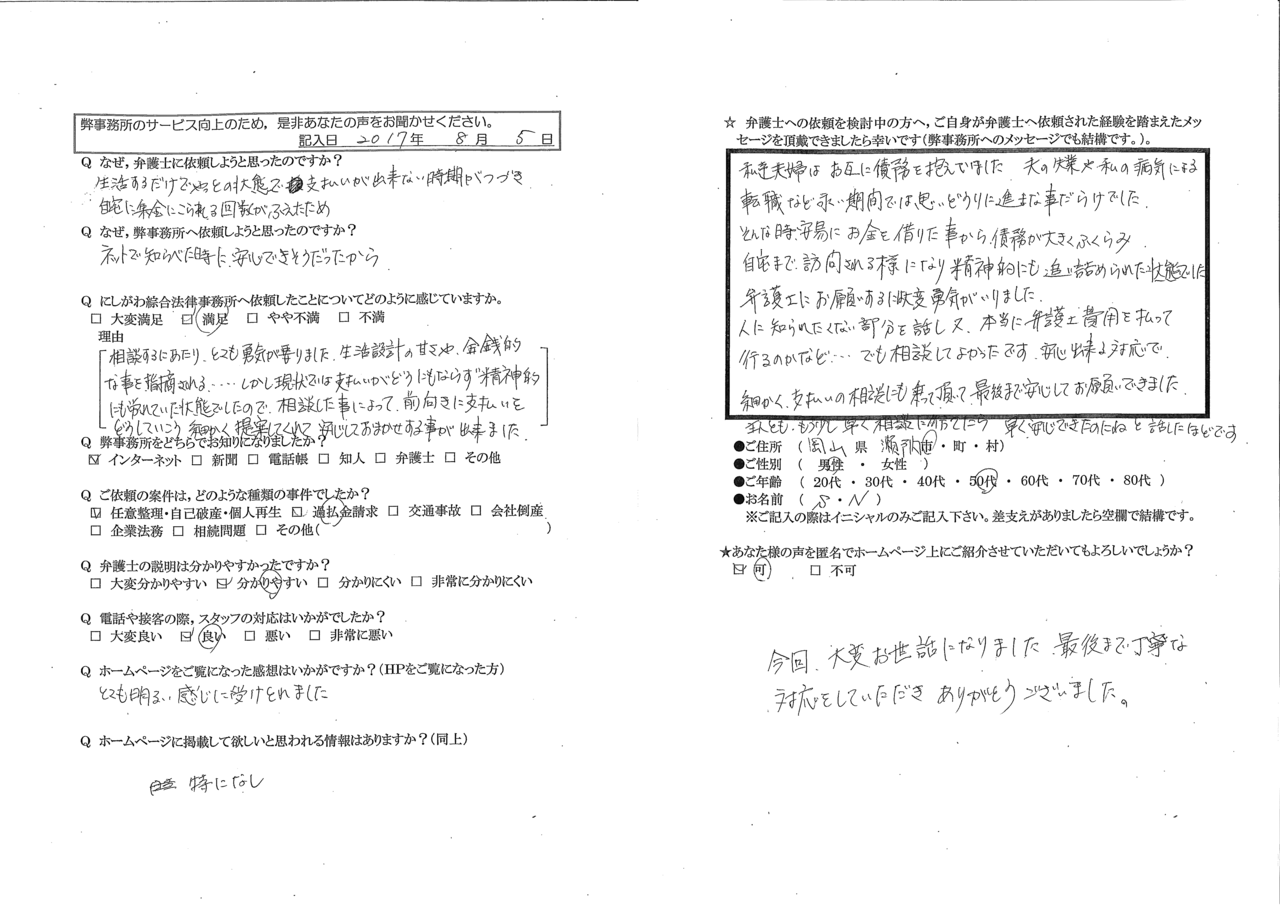 弊事務所のサービス向上のため，是非あなたの声をお聞かせください。
記入日 2017年 8月 5日
Q なぜ，弁護士に依頼しようと思ったのですか？
生活するだけでやっとの状態で 支払いが出来ない時期がつづき
自宅に集金にこられる回数がふえたため
Q なぜ，弊事務所へ依頼しようと思ったのですか？
ネットで知らべた時に、安心できそうだったから
Q にしがわ綜合法律事務所へ依頼したことについてどのように感じていますか。
□ 大変満足 ☑ 満足 □ やや不満 □ 不満
理由
相談するにあたり、とても勇気が要りました。生活設計の甘さや、金銭的
な事を指摘される‥‥しかし現状では支払いがどうにもならず精神的
にも労れていた状態でしたので、相談した事によって、前向きに支払いを
どうしていこう 細かく提案してくれて 安心しておまかせする事が出来ました。
Q 弊事務所をどちらでお知りになりましたか？
☑ インターネット □ 新聞 □ 電話帳 □ 知人 □ 弁護士 □ その他
Q ご依頼の案件は，どのような種類の事件でしたか？
☑ 任意整理・自己破産・個人再生 ☑ 過払金請求 □ 交通事故 □ 会社倒産
□ 企業法務 □ 相続問題 □ その他( )
Q 弁護士の説明は分かりやすかったですか？
□ 大変分かりやすい ☑ 分かりやすい □ 分かりにくい □ 非常に分かりにくい
Q 電話や接客の際，スタッフの対応はいかがでしたか？
□ 大変良い ☑ 良い □ 悪い □ 非常に悪い
Q ホームページをご覧になった感想はいかがですか？(HPをご覧になった方)
とても明るい感じに受けとれました
Q ホームページに掲載して欲しいと思われる情報はありますか？(同上)
特になし
☆ 弁護士への依頼を検討中の方へ，ご自身が弁護士へ依頼された経験を踏まえたメッ
セージを頂戴できましたら幸いです(弊事務所へのメッセージでも結構です。)。
私達夫婦は お互に債務を抱えていました 夫の失業や私の病気による
転職など永い期間では思いどうりに進まな事だらけでした。
そんな時、安易にお金を借りた事から、債務が大きくふくらみ
自宅まで、訪問される様になり精神的にも追い詰められた状態でした
弁護士にお願いするには大変勇気がいりました。
人に知られたくない部分を話し又、本当に弁護士費用を払って
行るのかなど‥‥でも相談してよかったです。安心出来る対応で、
細かく、支払いの相談にも乗って頂いて、最後まで安心してお願いできました。
主人とも、もう少し早く相談に行ってたら 早く安心できたのにねと話したほどです
●ご住所 ( 岡山 県 瀬戸内 市・町・村)
●ご性別 ( 男性 ・ 女性 )
●ご年齢 ( 20代 ・ 30代 ・ 40代 ・ 50代 ・ 60代 ・ 70代 ・ 80代 )
●お名前 ( S・N )
※ご記入の際はイニシャルのみご記入下さい。差支えがありましたら空欄で結構です。
★あなた様の声を匿名でホームページ上にご紹介させていただいてもよろしいでしょうか？
☑ 可 □ 不可
今回、大変お世話になりました 最後まで丁寧な
対応をしていただき ありがとうございました。